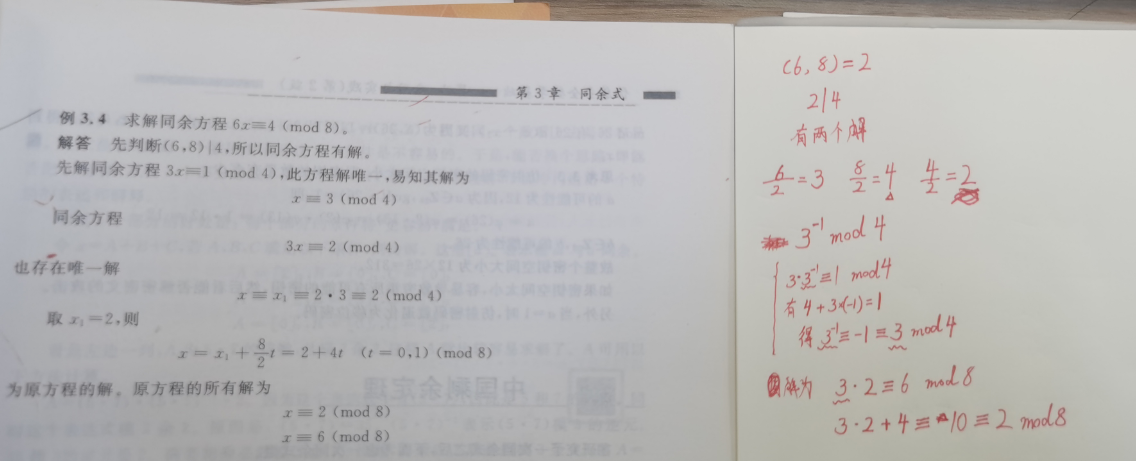 第 3 章 同余式
例 3.4 求解同余方程 6x≡4 (mod 8)。
解答 先判断(6,8)|4,所以同余方程有解。
先解同余方程 3x≡1 (mod 4),此方程解唯一,易知其解为
x≡3 (mod 4)
同余方程
3x≡2 (mod 4)
也存在唯一解
x≡x₁≡2·3≡2 (mod 4)
取 x₁=2,则
x=x₁+8/2t=2+4t (t=0,1)(mod 8)
为原方程的解。原方程的所有解为
x≡2 (mod 8)
x≡6 (mod 8)
(6,8)=2
2|4
有两个解
6/2=3 8/2=4 4/2=2
3⁻¹ mod 4
3·3⁻¹≡1 mod4
有 4+3×(-1)=1
得 3⁻¹≡-1≡3 mod4
解为 3·2≡6 mod8
3·2+4≡10≡2 mod8